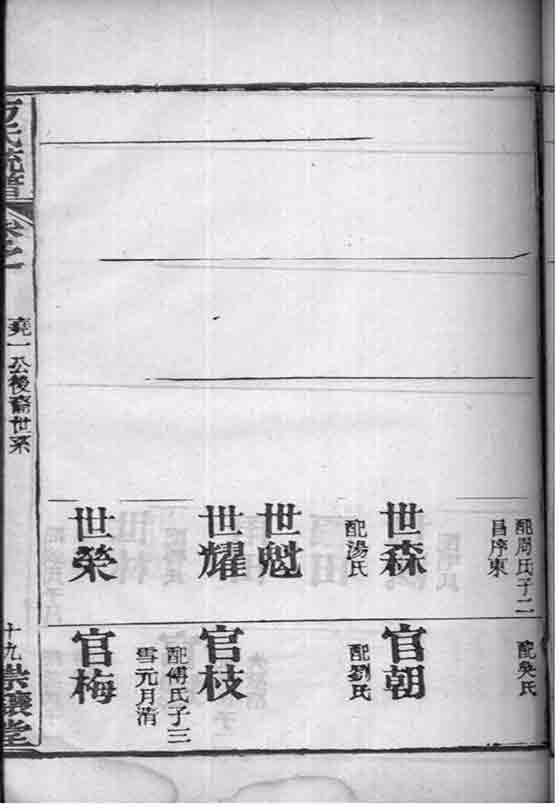 配周氏子二
昌序東
世森
配湯氏
世魁
世耀
世榮
配吳氏
官朝
配劉氏
官枝
配傅氏子三
雪元月清
官梅
方氏統譜
卷之一
堯一公後裔世系
十九
崇讓堂